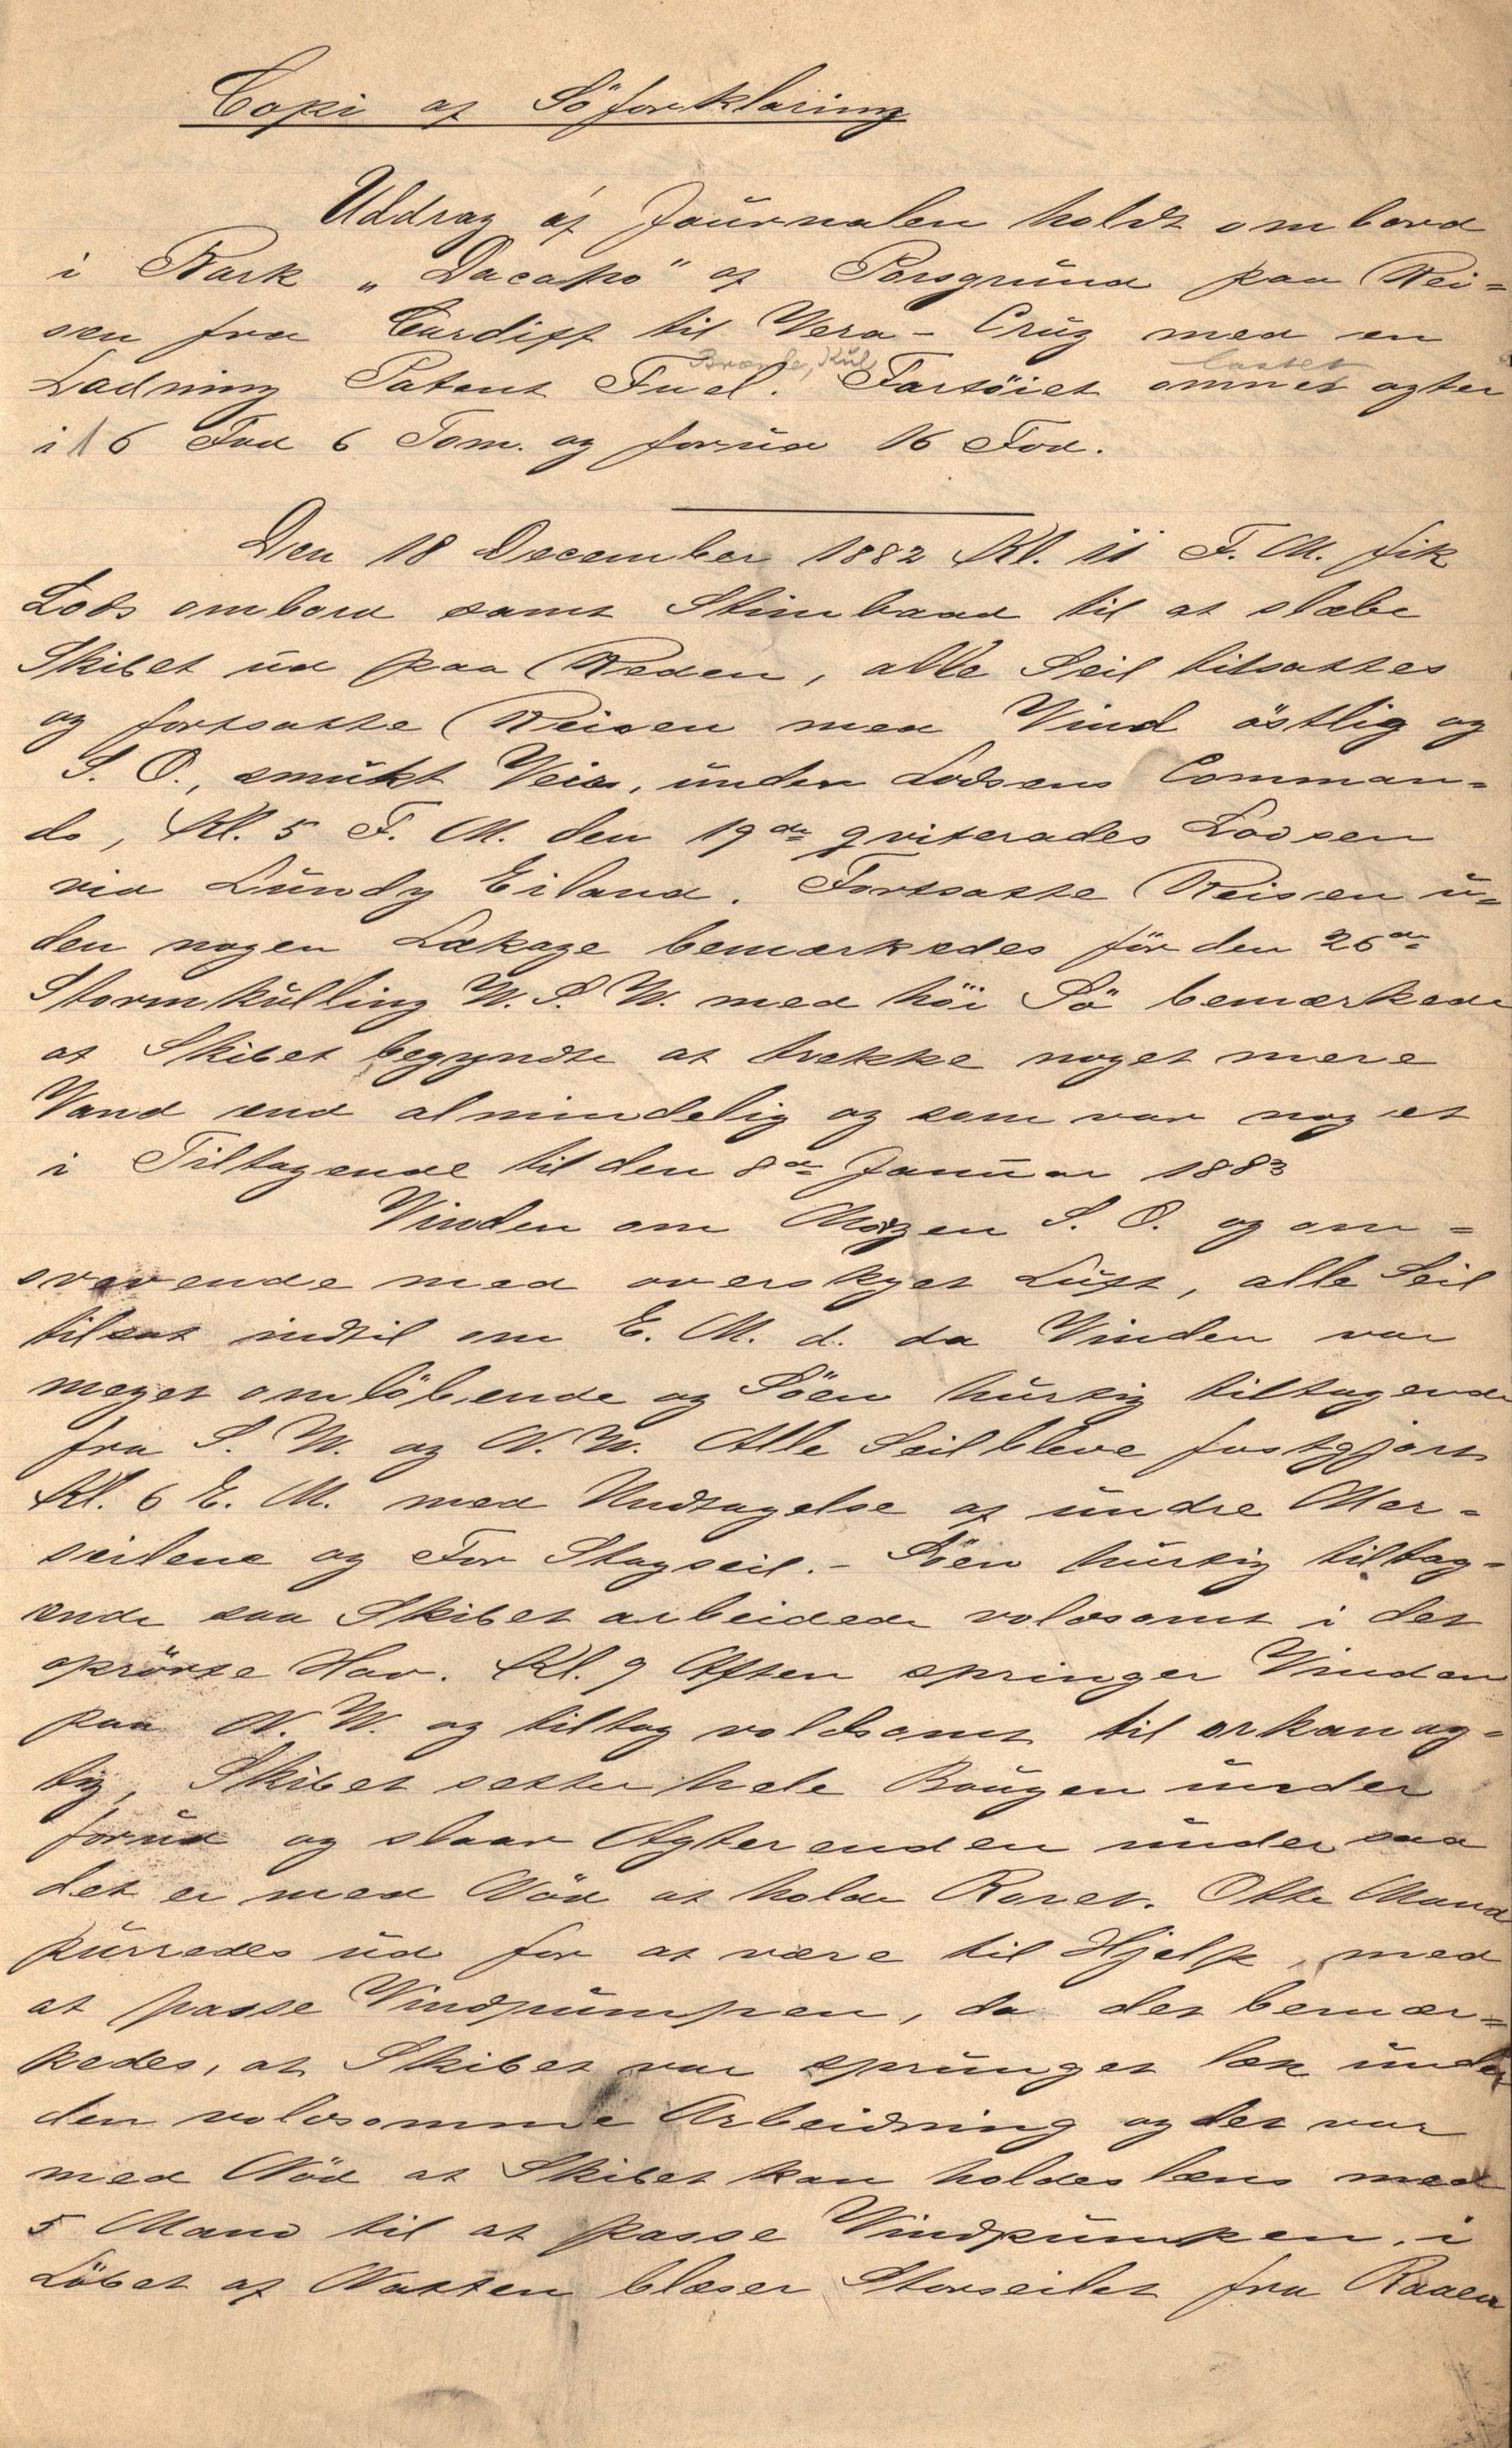 Copi af Söforklaring
Uddrag af Journalen holdt ombord
i Bark „Dacapo" af Porsgrund paa Rei=
sen fra Cardiff til Vera-Cruz med en
Brænde, Kul lastet
Ladning Patent Fuel. Fartöiet ammet agter
i 16 Fod 6 Tom. og forud 16 Fod.
Den 18 December 1882 Kl. 11 F. M. fik
Lods ombord samt Stimbaad til at slæbe
Skibet ud paa Reden, alle Seil tilsattes
og fortsatte Reisen med Vind östlig og
S. O., smukt Veir, under Lodsens Comman=
do, Kl. 5 F. M. den 19de qviterades Lodsen
vid Lundy Eiland. Fortsatte Reisen u=
den nogen Lækage bemærkedes för den 26de
Stormkulling W. S. W. med höi Sö bemærkede
at Skibet begyndte at trekke noget mere
Vand end almindelig og som var noget
i Tiltagende til den 8de Januar 1883
Vinden om Morgen S. O. og om=
svævende med overskyet Luft, alle Seil
tilsat indtil om E. M. d. da Vinden var
meget omlöbende og Söen hurtig tiltagende
fra S. W. og N. W. Alle Seil bleve fastgjort
Kl. 6 E. M. med Undtagelse af undre Mer=
seilene og For Stagseil. - Söen hurtig tiltag=
ende saa Skibet arbeidede voldsomt i det
oprörte Hav. Kl. 9 Aften springer Vinden
paa N. W. og tiltog voldsomt til orkanag=
tig, Skibet sætter hele Bougen under
forud og slaar Agterenden under saa
det er med Nöd at holde Roret. Otte Mand
purredes ud for at være til Hjelp, med
at passe Vindpumpen, da det bemær=
kedes, at Skibet var sprunget læk under
den voldsomme Arbeidning og det var
med Nöd at Skibet kan holdes læns med
5 Mand til at passe Vindpumpen, i
Löbet af Natten blæser Storseilet fra Raaen